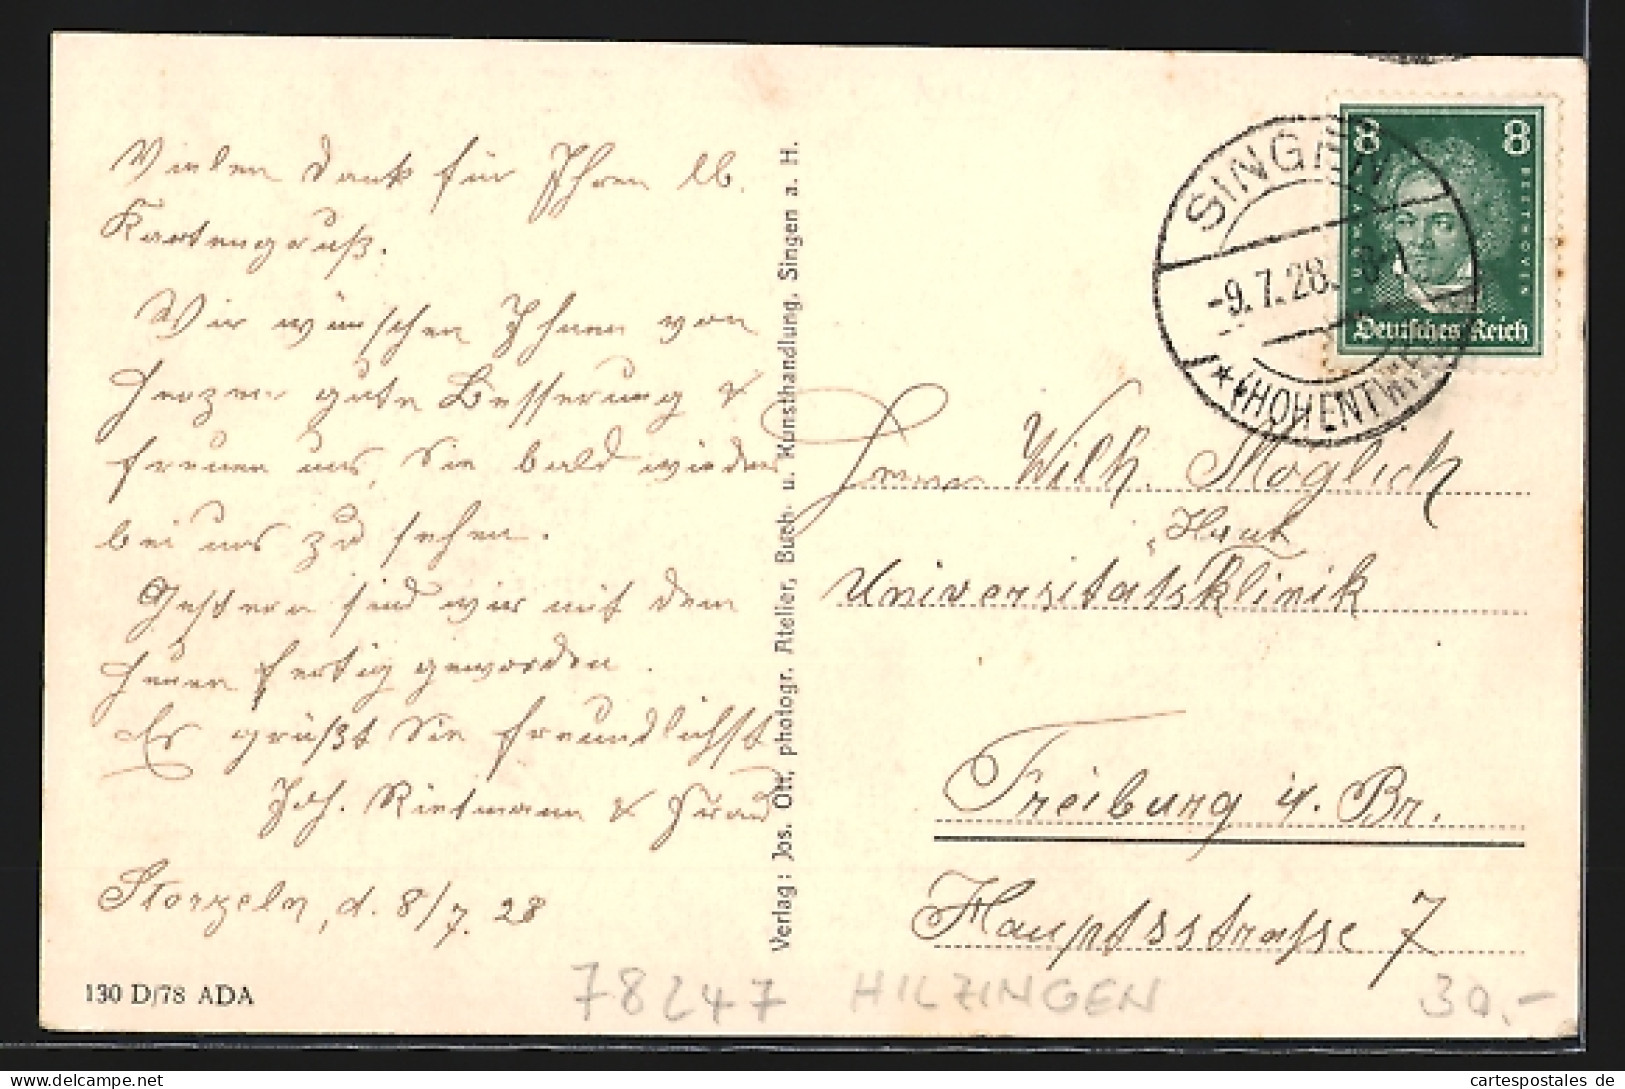 Vielen Dank für Ihren lb.
Kartengruß.
Wir wünschen Ihnen von
Herzen gute Besserung &
freuen uns, Sie bald wieder
bei uns zu sehen.
Gestern sind wir mit dem
Heuen fertig geworden.
Es grüßt Sie freundlichst
Joh. Rietmann & Frau
Storzeln, d. 8/7. 28
130 D/78 ADA
Verlag: Jos. Ott, photogr. Atelier, Buch- u. Kunsthandlung, Singen a. H.
8 8
BEETHOVEN
Deutsches Reich
SINGEN
-9.7.28.
(HOHENTWIEL)
Herrn Wilh. Möglich
Haut
Universitätsklinik
Freiburg i. Br.
Hauptsstrasse 7
78247 HILZINGEN 30,-
cartespostales de